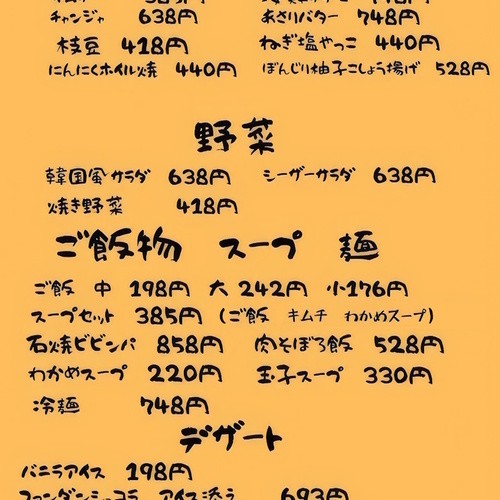 チャンジャ 638円 あさりバター 748円
枝豆 418円 ねぎ塩やっこ 440円
にんにくホイル焼 440円 ぼんじり柚子こしょう揚げ 528円
野菜
韓国風サラダ 638円 シーザーサラダ 638円
焼き野菜 418円
ご飯物 スープ 麺
ご飯 中 198円 大 242円 小176円
スープセット 385円 (ご飯 キムチ わかめスープ)
石焼ビビンパ 858円 肉そぼろ飯 528円
わかめスープ 220円 玉子スープ 330円
冷麺 748円
デザート
バニラアイス 198円
フォンダンショコラ アイス添え 693円